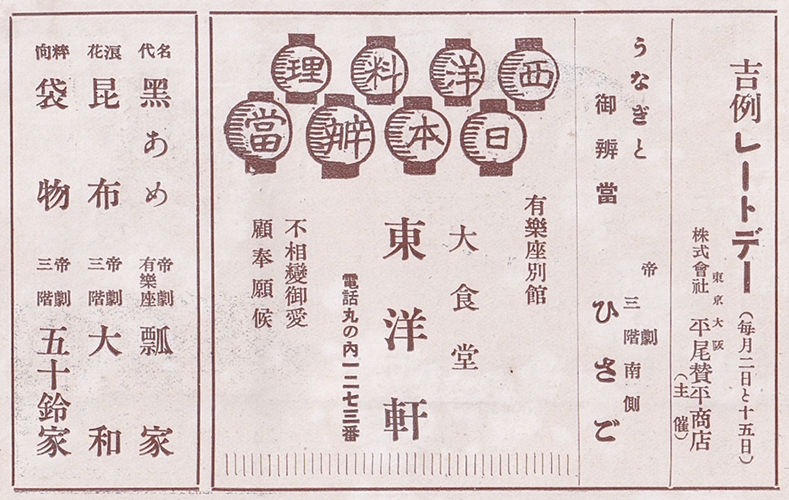 吉例レートデー(毎月二日と十五日)
東京大阪
株式會社 平尾賛平商店
(主催)
うなぎと
御辨當
帝劇
三階南側
ひさご
西洋料理
日本辨當
有樂座別館
大食堂
東洋軒
電話丸の内一二七三番
不相變御愛
顧奉願候
名代
黑あめ
帝劇
有樂座
瓢家
浪花
昆布
帝劇
三階
大和
粹向
袋物
帝劇
三階
五十鈴家